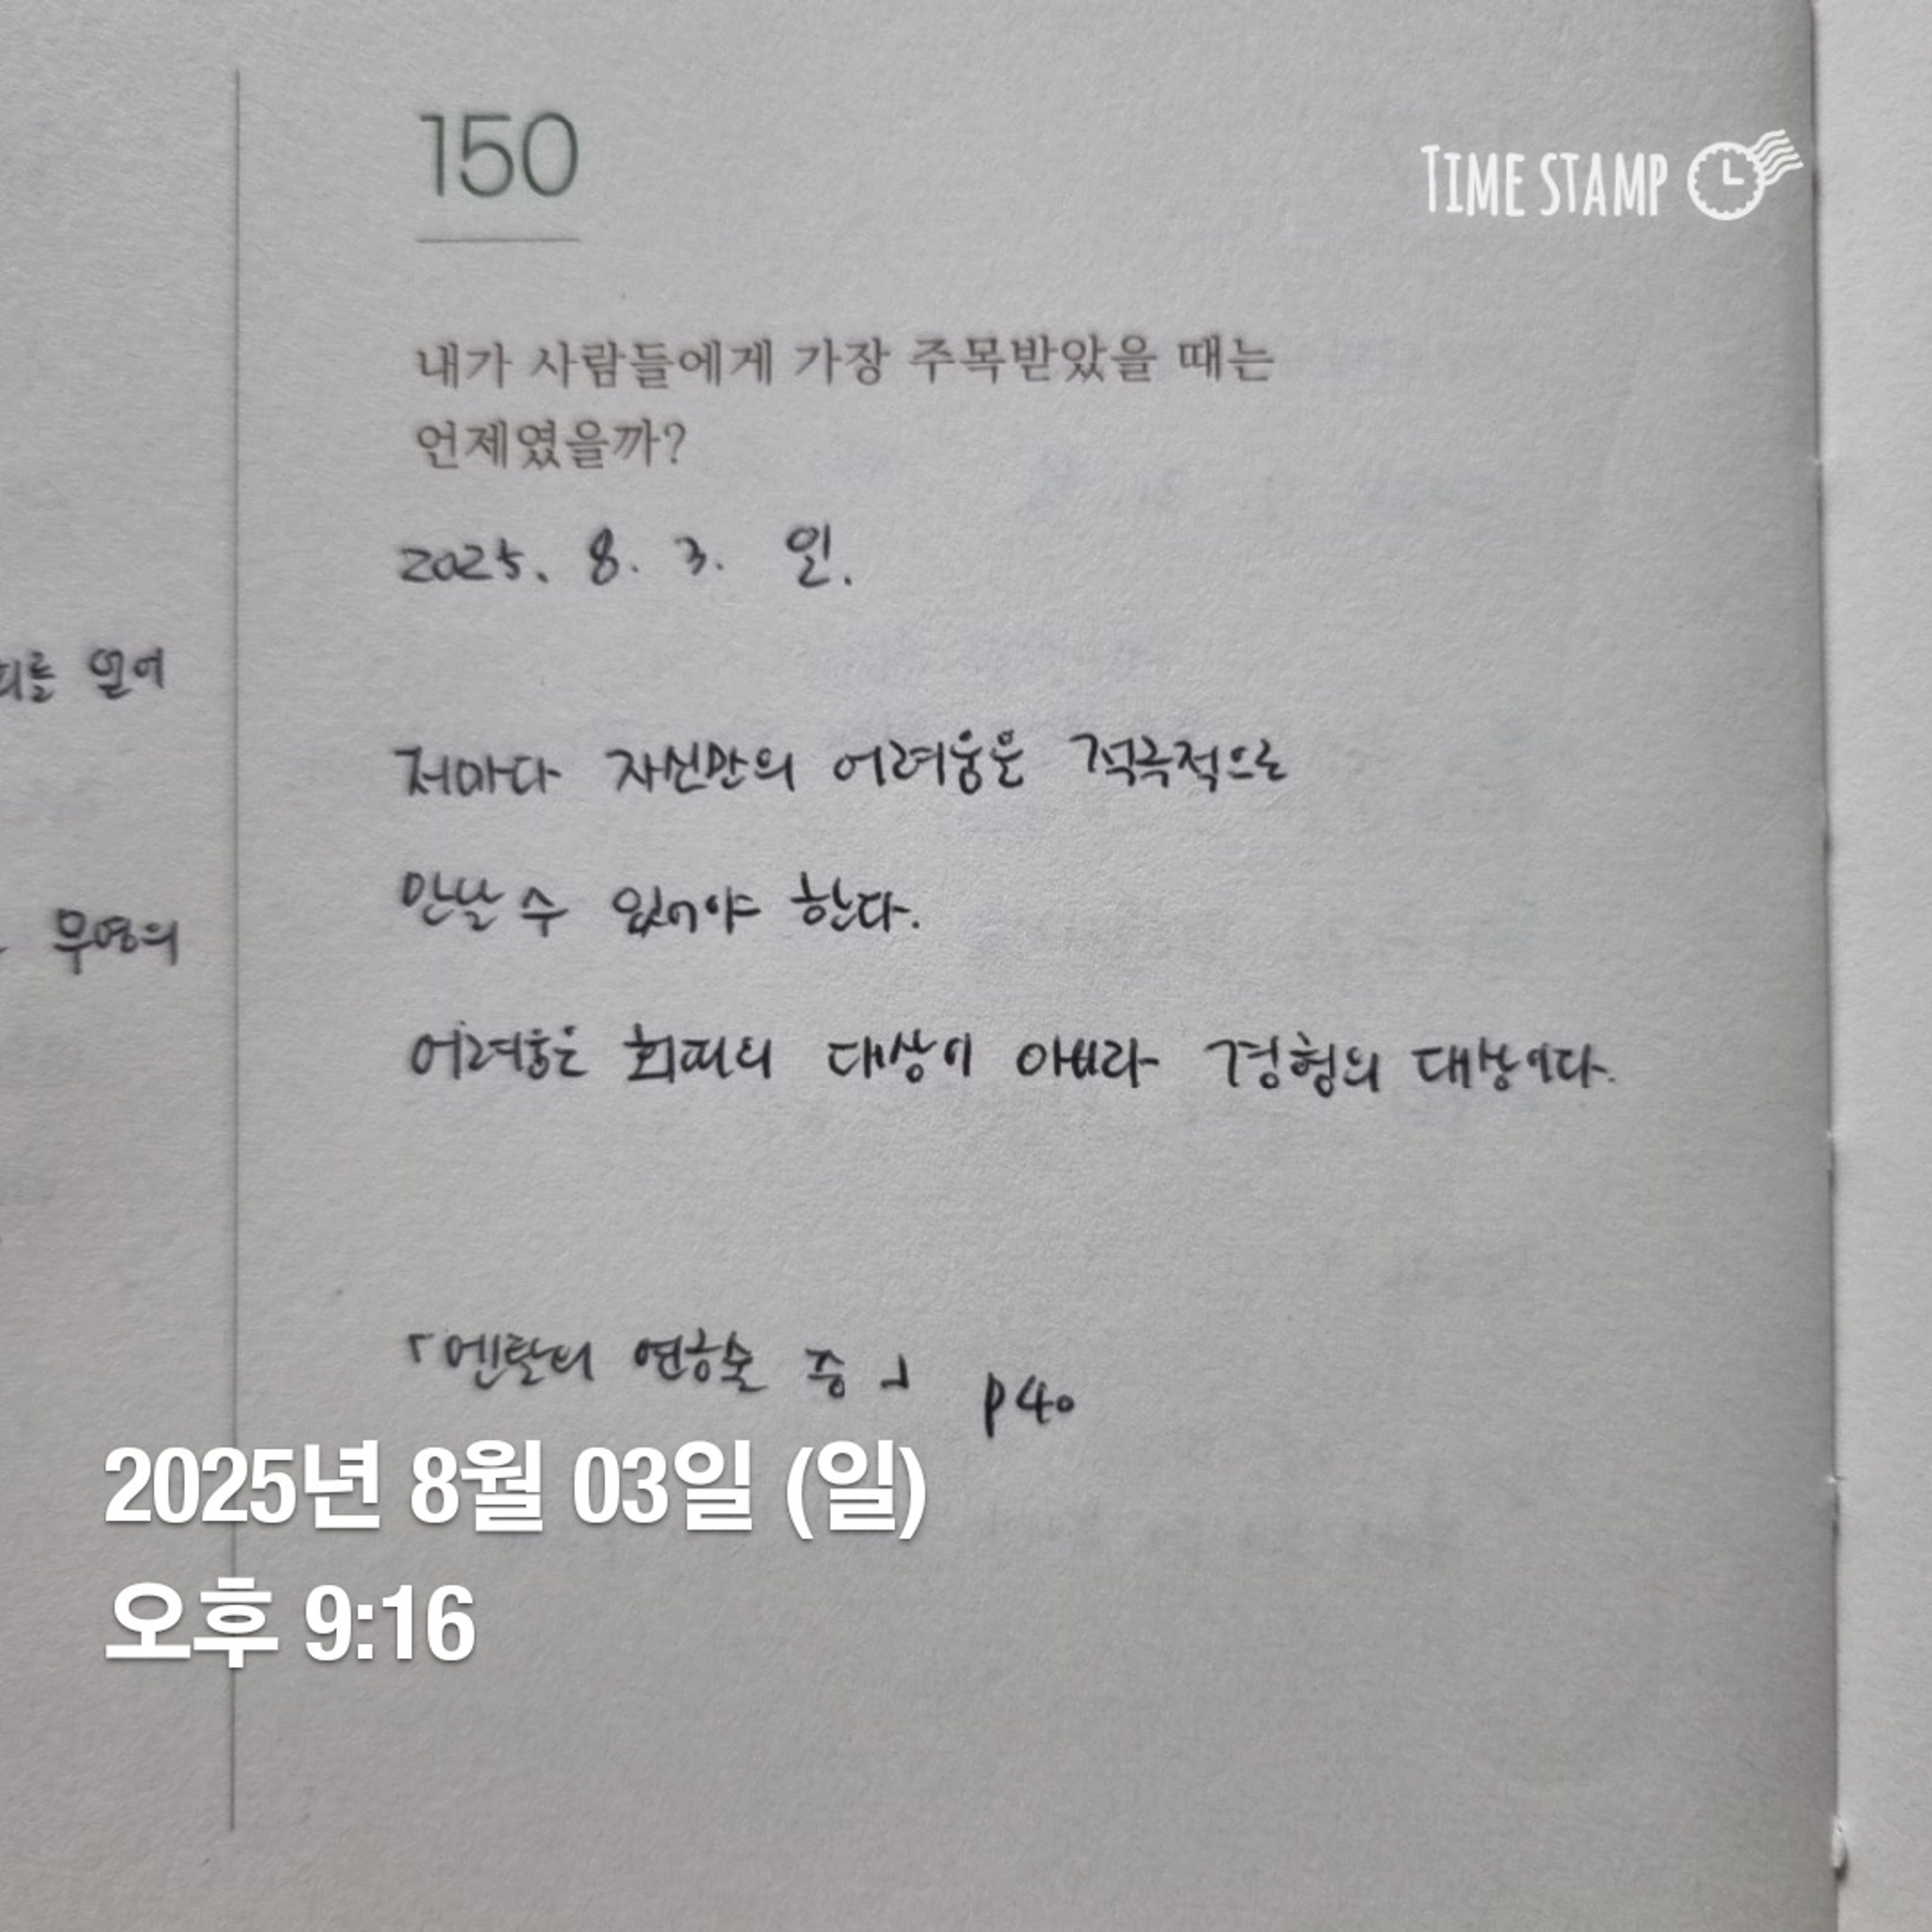 150
TIME STAMP
내가 사람들에게 가장 주목받았을 때는
언제였을까?
2025. 8. 3. 일.
를 열어
저마다 자신만의 어려움은 적극적으로
만날 수 있어야 한다.
무명의
어려움은 회피의 대상이 아니라 경험의 대상이다.
「멘탈의 연금술 중」 p40
2025년 8월 03일 (일)
오후 9:16